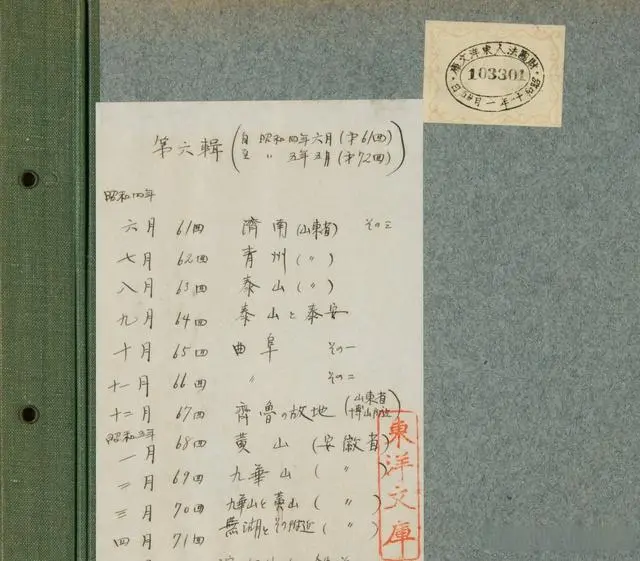 財團法人東洋文庫
103301
昭和十一年一月
第六輯 (自 昭和四年六月 (第61回)
至 〃 五年五月 (第72回))
昭和四年
六月 61回 濟南 (山東省) その三
七月 62回 青州 (〃)
八月 63回 泰山 (〃)
九月 64回 泰山と泰安
十月 65回 曲阜 その一
十一月 66回 〃 その二
十二月 67回 齊魯の故地 (山東省
博山附近)
昭和五年
一月 68回 黄山 (安徽省)
二月 69回 九華山 (〃)
三月 70回 九華山と黄山 (〃)
四月 71回 蕪湖とその附近 (〃)
東洋文庫